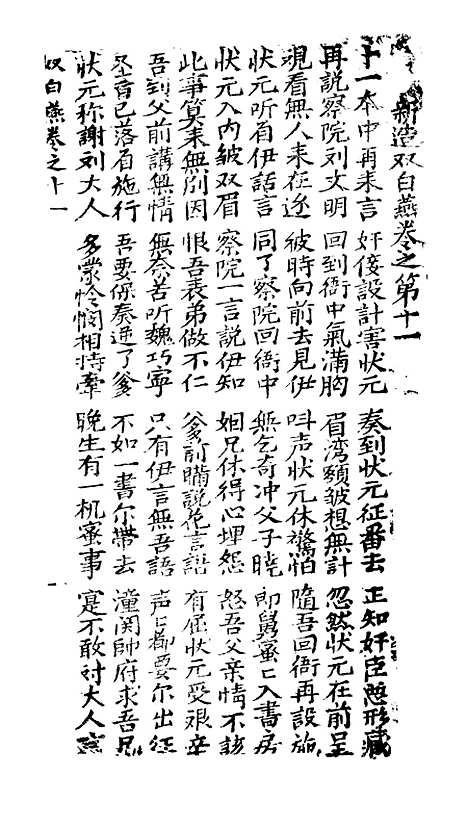 新造双白燕卷之第十一
十一本中再来言 奸佞設計害狀元 奏到狀元征番去 正知奸臣惣形藏
再説察院刘文明 回到衙中氣滿胸 眉湾頟皱想無計 忽然状元在前呈
覌看無人来在迩 彼時向前去見伊 呌声状元休驚怕 隨吾回衙再設施
状元听着伊話言 同了察院回衙中 無乞奇冲父子曉 即舅蜜〻入書房
状元入内皱双眉 察院一言説伊知 姻兄休得心埋怨 怒吾父亲情不該
此事算来無别因 恨吾表弟做不仁 爹前瞞説花言語 有屈状元受艰辛
吾到父前講無情 無奈苦听魏巧寧 只有伊言無吾語 声〻都要尔出征
圣旨已落着施行 吾要保奏逆了爹 不如一書尔带去 潼関帥府求吾兄
状元称謝刘大人 多蒙怜憫相持牽 晚生有一机蜜事 寔不敢对大人
双白燕卷之十一 一